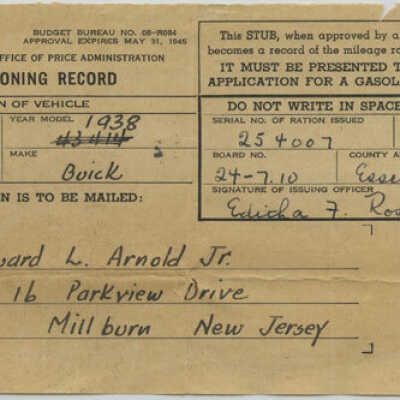 BUDGET BUREAU NO. 08-R084
APPROVAL EXPIRES MAY 31, 1945
OFFICE OF PRICE ADMINISTRATION
ONING RECORD
N OF VEHICLE
YEAR MODEL 1938
43414
MAKE
Buick
N IS TO BE MAILED:
This STUB, when approved by a
becomes a record of the mileage ra
IT MUST BE PRESENTED T
APPLICATION FOR A GASOL
DO NOT WRITE IN SPACE
SERIAL NO. OF RATION ISSUED
254007
BOARD NO.
24-7.10
COUNTY A
Esse
SIGNATURE OF ISSUING OFFICER
Editha F. Ros
ward L. Arnold Jr.
16 Parkview Drive
Millburn New Jersey